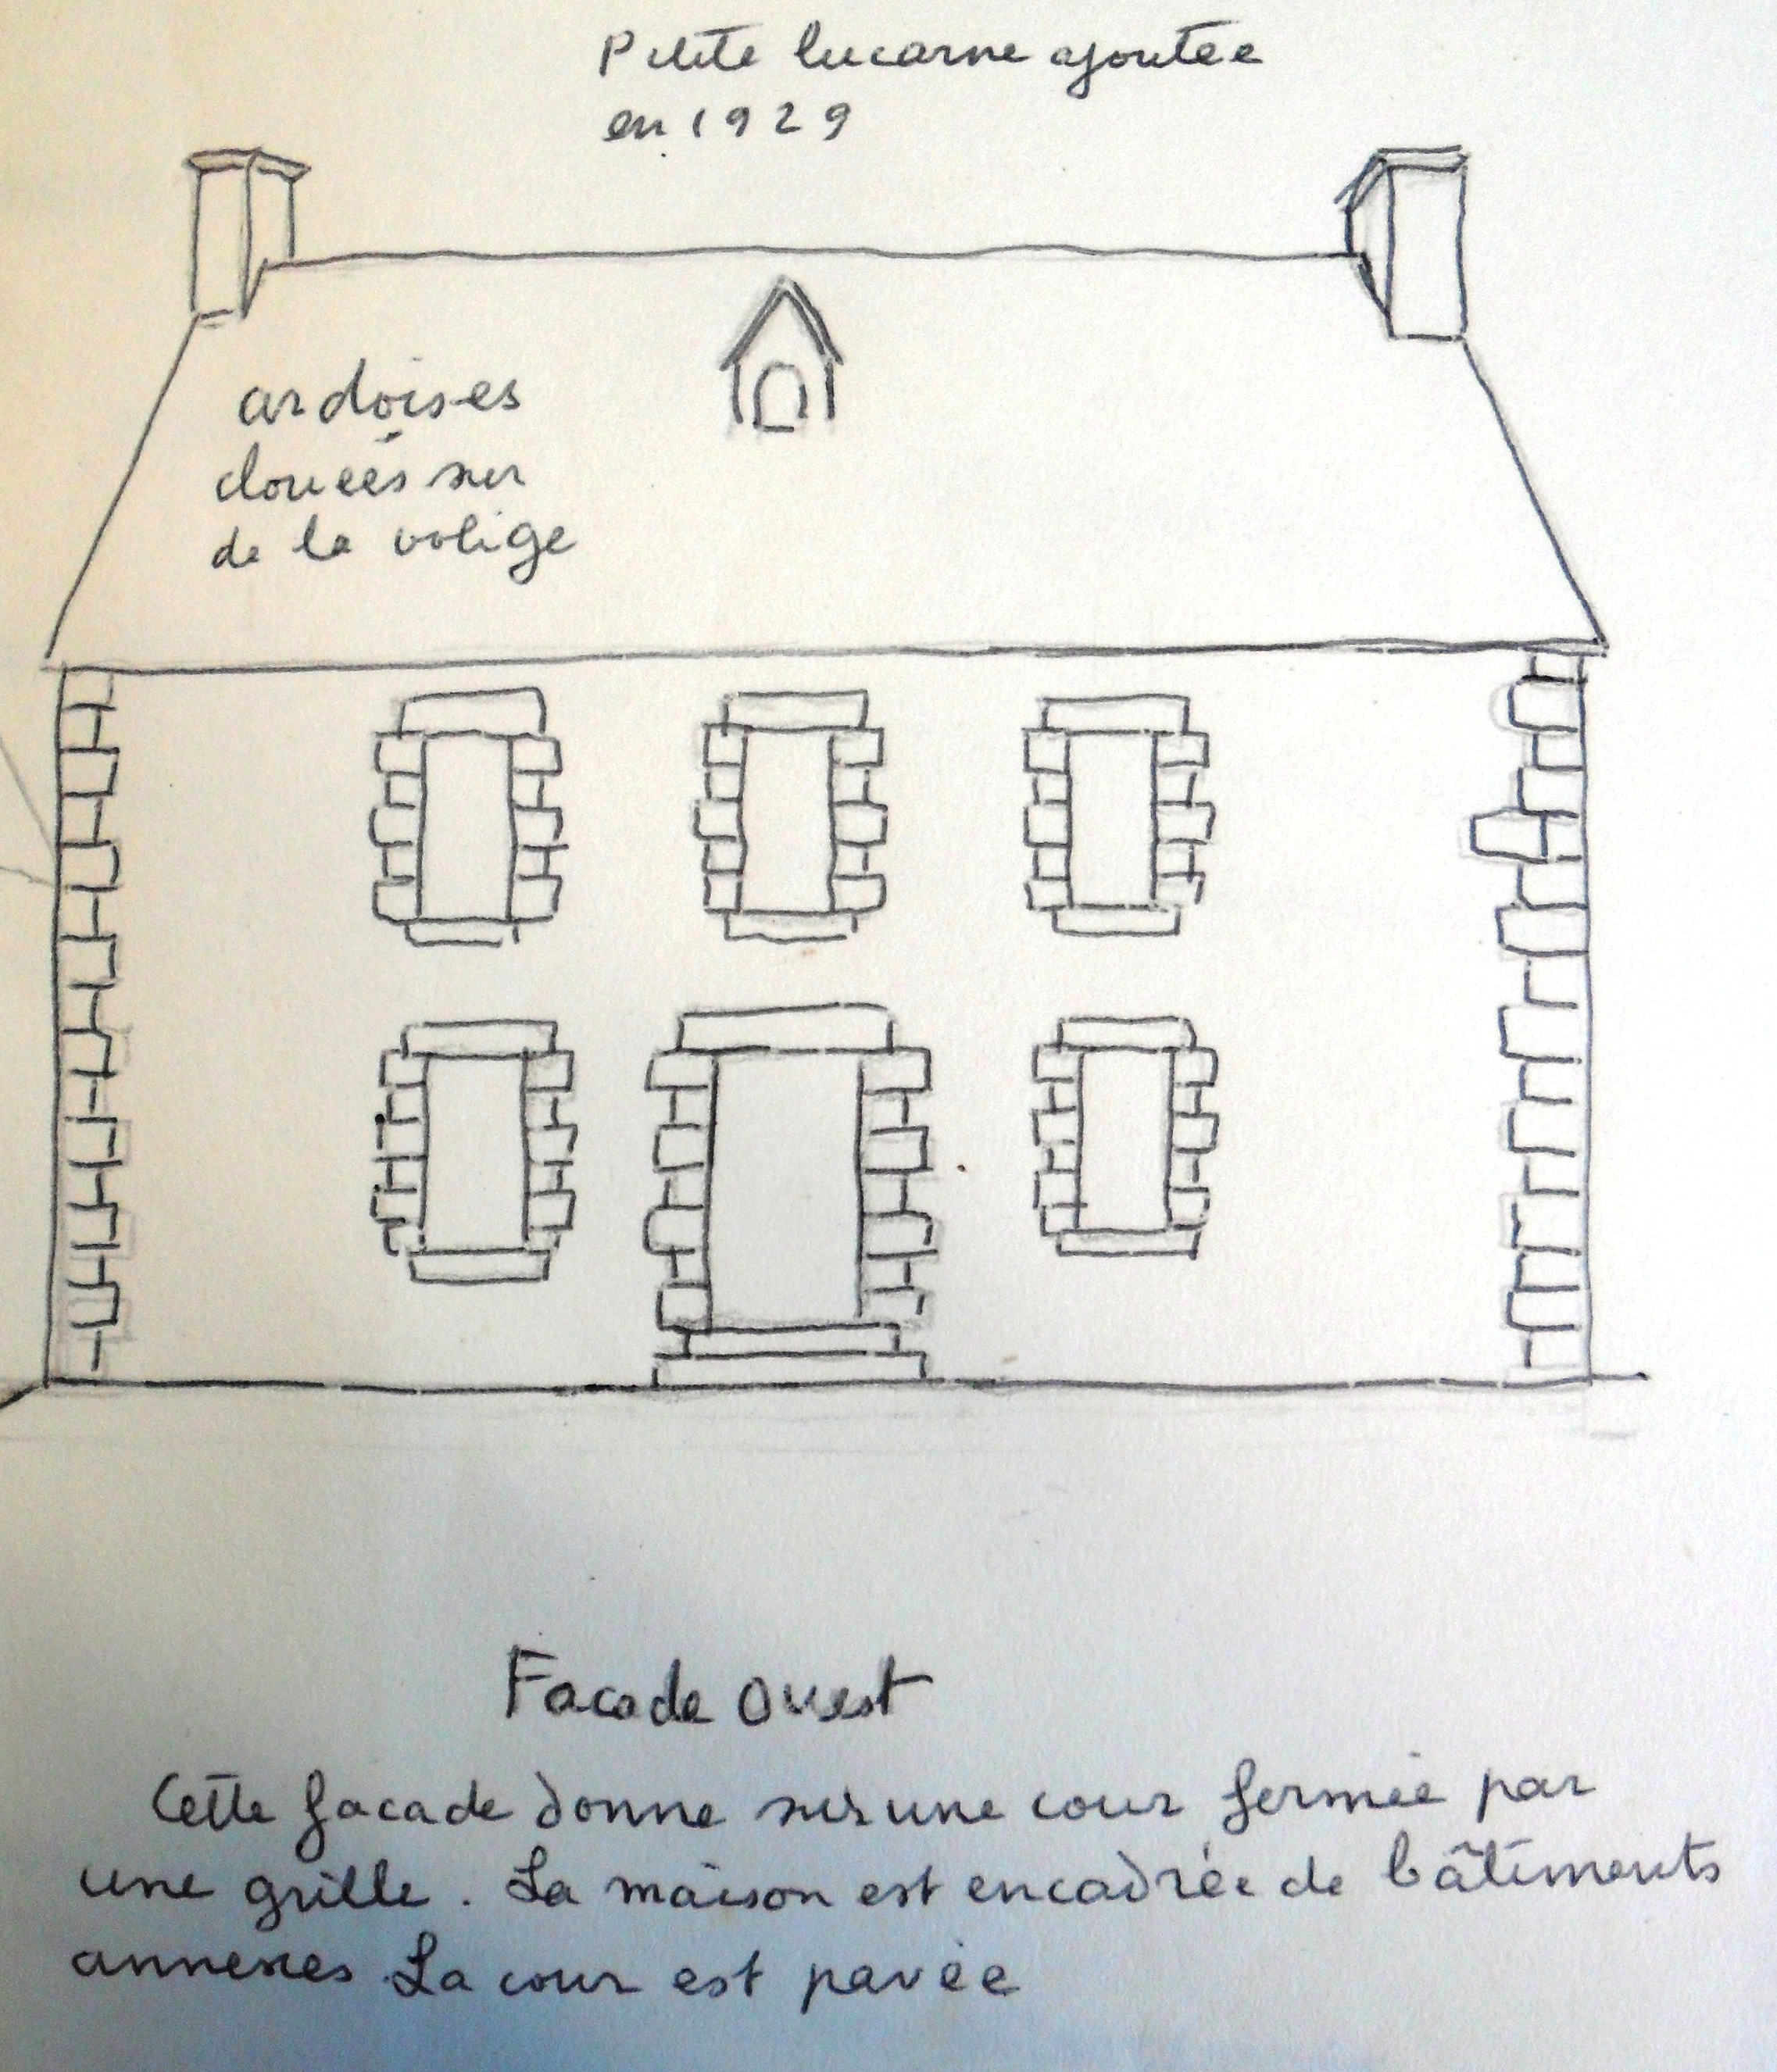 Petite lucarne ajoutée
en 1929
ardoises
clouées sur
de la volige
Facade Ouest
Cette facade donne sur une cour fermée par
une grille. La maison est encadrée de bâtiments
annexes La cour est pavée